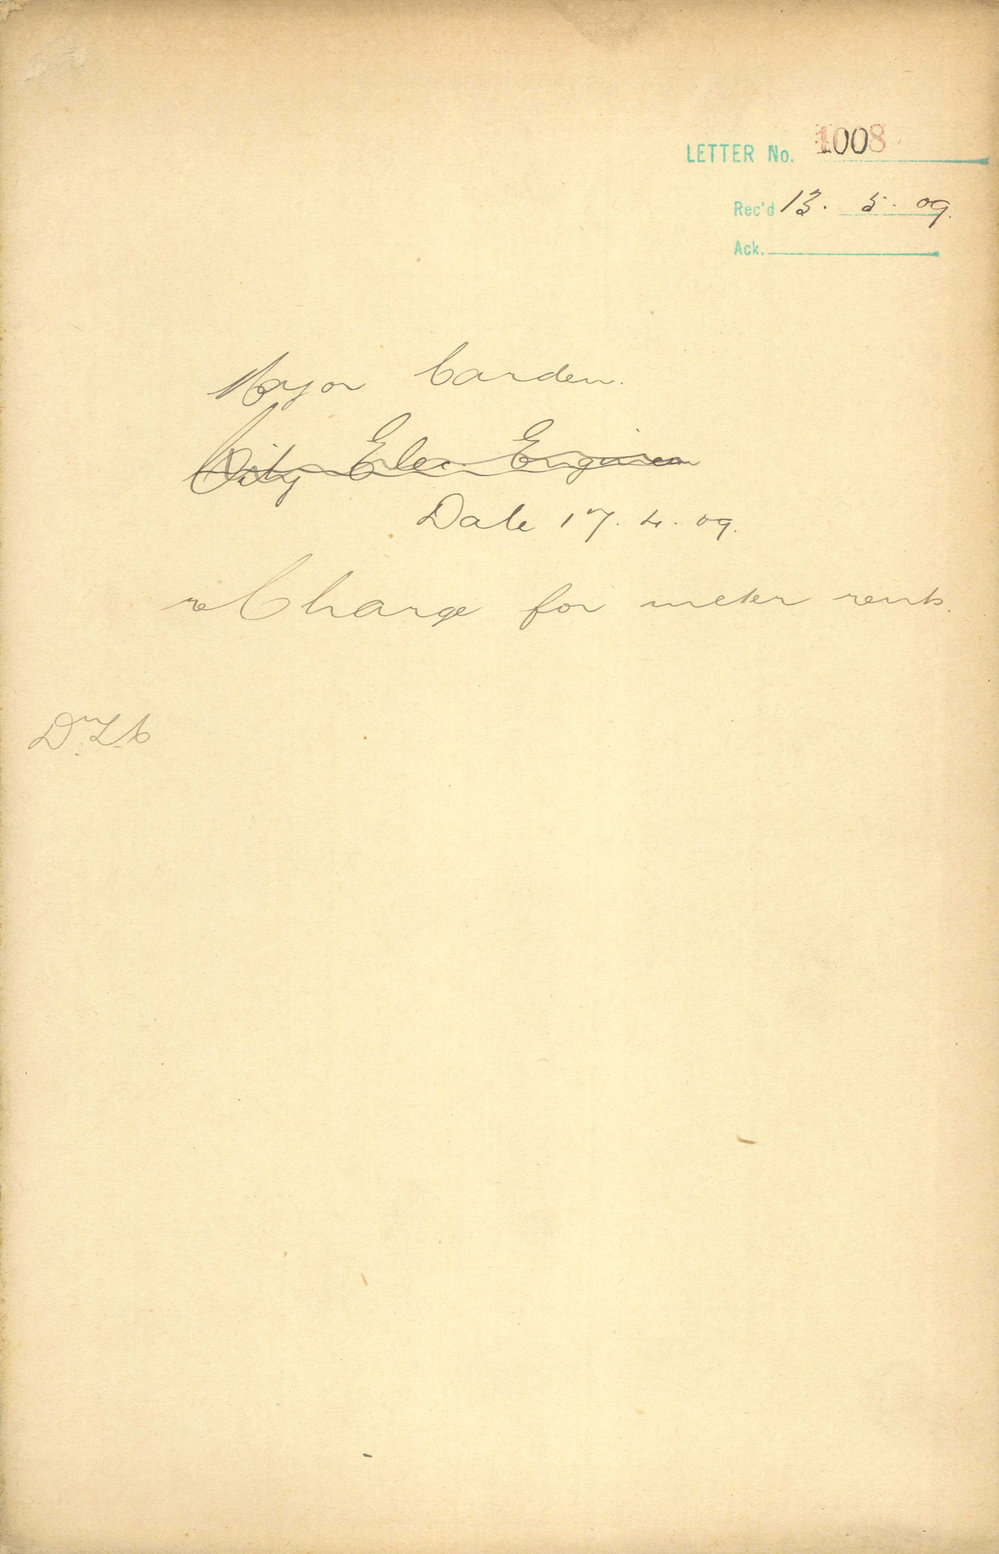 LETTER No. 1008
Rec'd 13. 5. 09.
Ack.
Major Carden.
City Elec. Engineer
Date 17. 4. 09.
re Charge for meter rents.